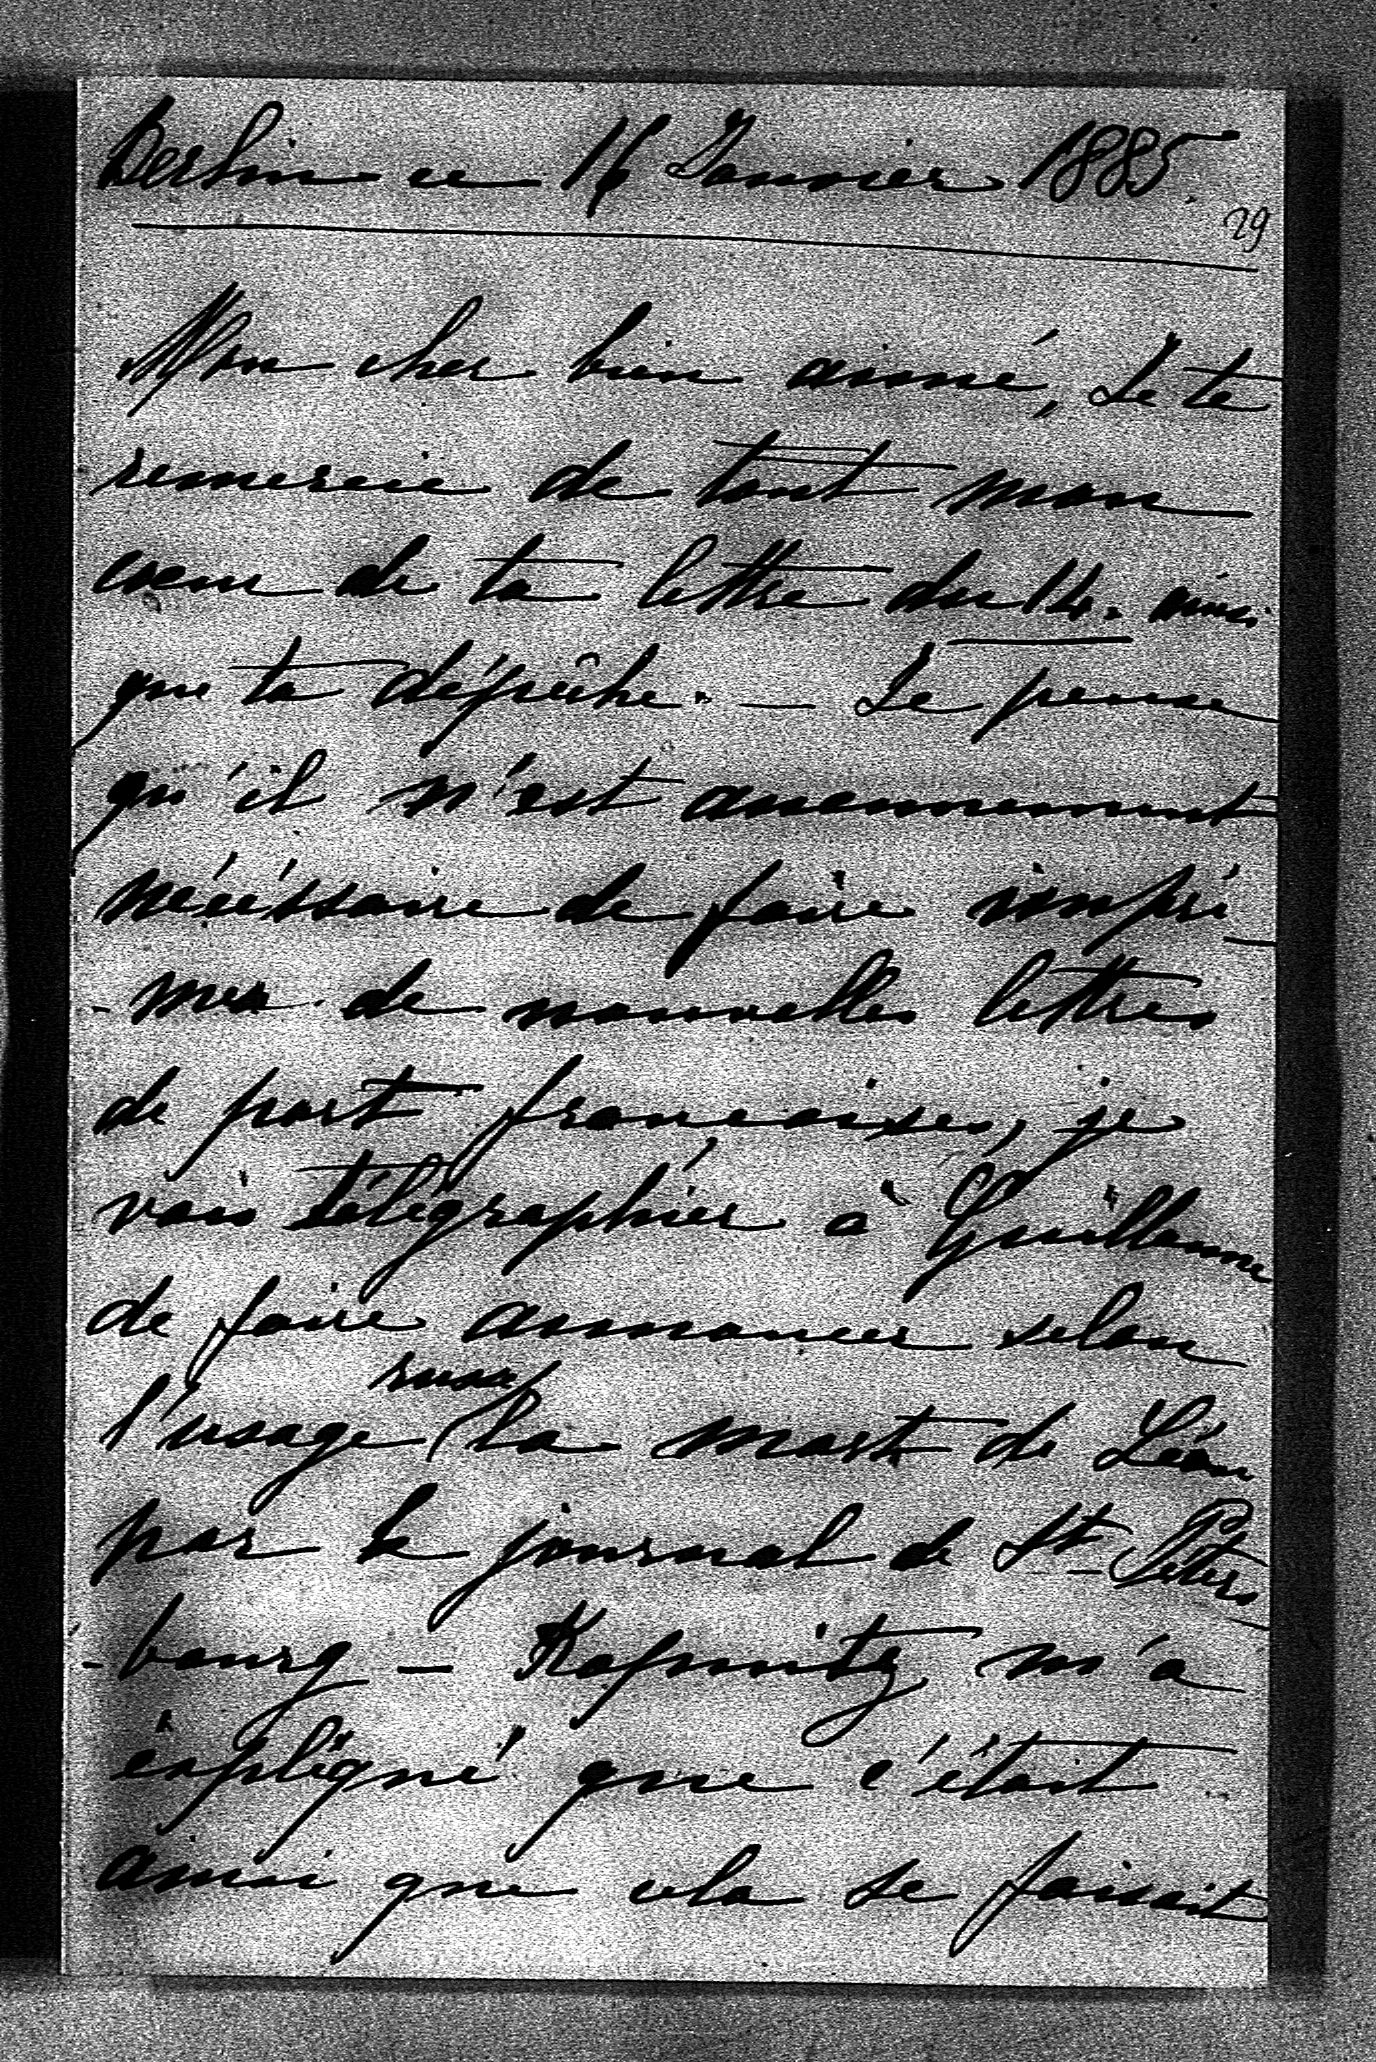 Berlin ce 16 Janvier 1885.
29
Mon cher bien aimé, Je te
remercie de tout mon
coeur de ta lettre du 14. ainsi
que ta dépêche. — Je pense
qu'il n'est aucunement
nécéssaire de faire impri-
-mer de nouvelles lettres
de part françaises, je
vais télégraphier à Guillaume
de faire annoncer selon
russe
l'usage (la mort de Léon
par le journal de St Peters-
-bourg — Kapnitz m'a
éxpliqué que c'était
ainsi que cela se faisait